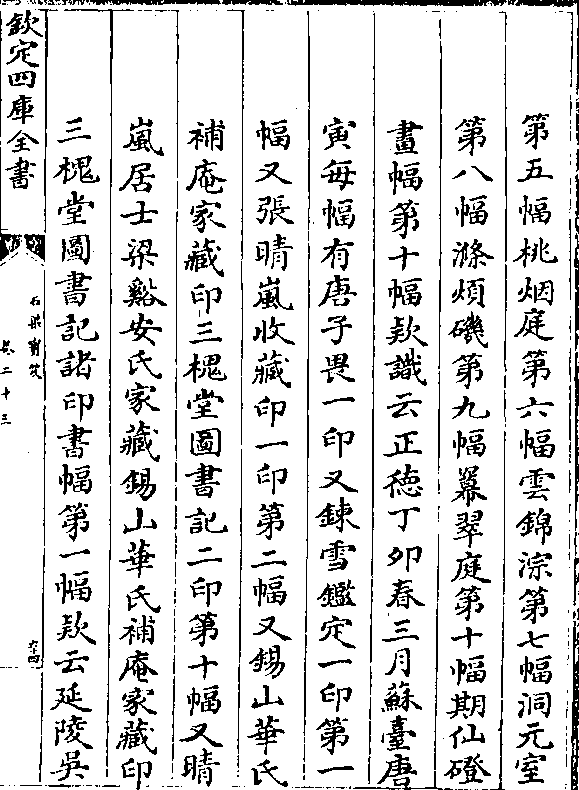 第五幅桃烟庭第六幅雲錦淙第七幅洞元室
第八幅滌煩磯第九幅羃翠庭第十幅期仙磴
畫幅第十幅欵識云正徳丁卯春三月蘇臺唐
寅每幅有唐子畏一印又鍊雪鑑定一印第一
幅又張晴嵐收藏印一印第二幅又錫山華氏
補庵家藏印三槐堂圖書記二印第十幅又晴
嵐居士梁谿安氏家藏錫山華氏補庵家藏印
三槐堂圖書記諸印書幅第一幅欵云延陵吳
欽定四庫全書
石渠寶笈
卷二十三
六十四